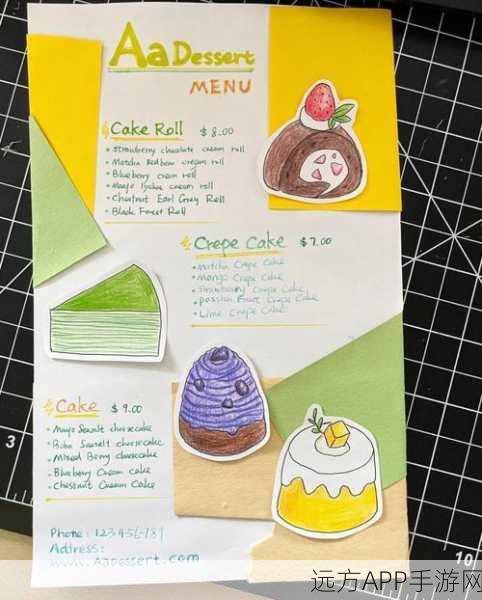 Aa Dessert
MENU
Cake Roll $8.00
• Strawberry chocolate cream roll
• Matcha Redbean cream roll
• Blueberry cream roll
• Mango lychee cream roll
• Chestnut Earl Grey Roll
• Black Forest Roll
Crepe Cake $7.00
• Matcha Crepe Cake
• Mango Crepe Cake
• Strawberry Crepe Cake
• Passion Fruit Crepe Cake
• Lime Crepe Cake
Cake $9.00
• Mango Seasalt cheesecake
• Boba Seasalt cheesecake
• Mixed Berry cheesecake
• Blueberry Cream cake
• Chestnut Cream Cake
Phone: 123456789
Address:
www.AaDessert.com
3
10
远方APP手游网